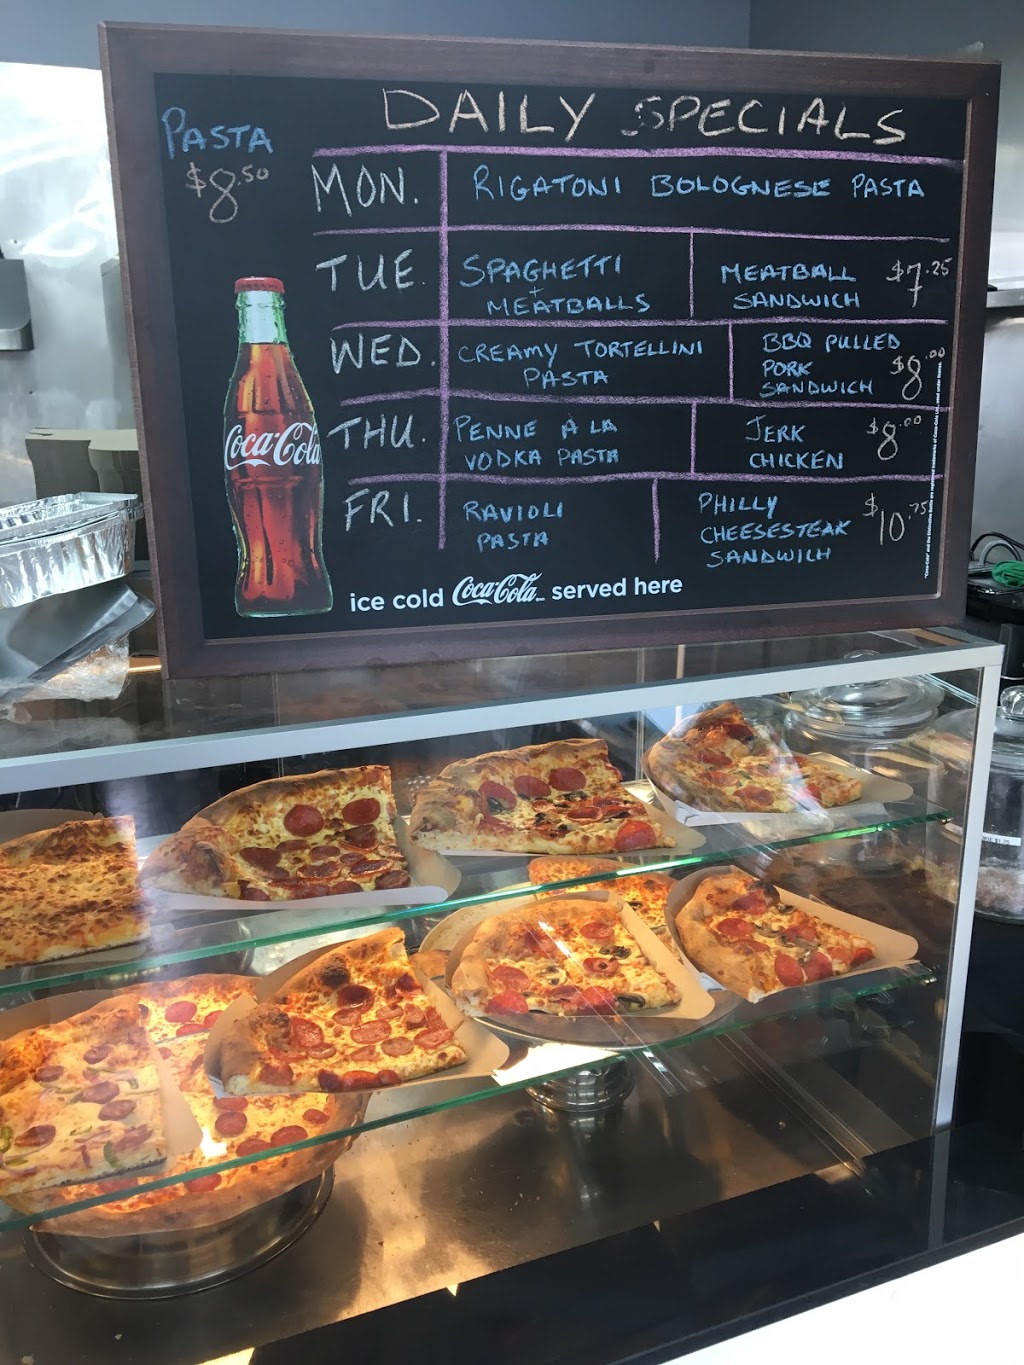 DAILY SPECIALS
PASTA
$8.50
MON.
RIGATONI BOLOGNESE PASTA
TUE.
SPAGHETTI
+
MEATBALLS
MEATBALL
SANDWICH
$7.25
WED.
CREAMY TORTELLINI
PASTA
BBQ PULLED
PORK
SANDWICH
$8.00
THU.
PENNE À LA
VODKA PASTA
JERK
CHICKEN
$8.00
FRI.
RAVIOLI
PASTA
PHILLY
CHEESESTEAK
SANDWICH
$10.75
Coca-Cola
ice cold Coca-Cola served here